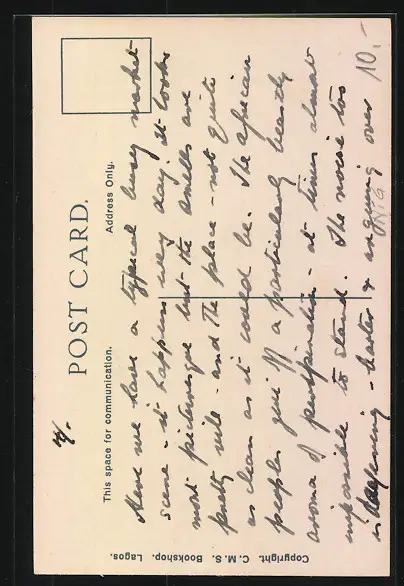 4/-
POST CARD.
This space for communication.
Address Only.
Here we have a typical busy market
scene - it happens every day. It looks
most picturesque but the smells are
pretty vile - and the place - not quite
as clean as it could be. The african
peoples give off a particularly beastly
aroma of perspiration - at times almost
impossible to stand. The noise too
is deafening - barter & arguing over
10.-
Copyright. C. M. S. Bookshop. Lagos.